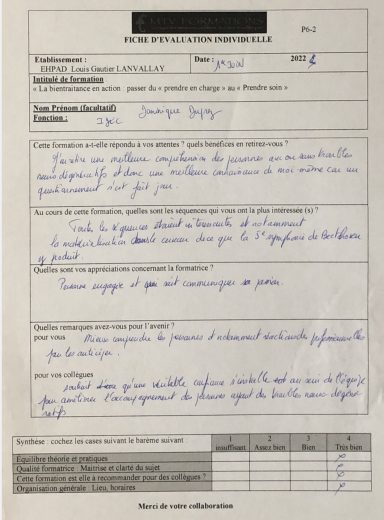 MTV FORMATIONS
P6-2
FICHE D'EVALUATION INDIVIDUELLE
Etablissement :
EHPAD Louis Gautier LANVALLAY
Date :
2022
Intitulé de formation
« La bientraitance en action : passer du « prendre en charge » au « Prendre soin »
Nom Prénom (facultatif)
Dominique
Fonction :
Cette formation a-t-elle répondu à vos attentes ? quels bénéfices en retirez-vous ?
J'en retire une meilleure compréhension des personnes qui ont des troubles
neuro dégénératifs et donc une meilleure connaissance de moi-même car un
questionnement s'est fait jour.
Au cours de cette formation, quelles sont les séquences qui vous ont la plus intéressée (s) ?
Toutes les séquences étaient intéressantes et notamment
la modélisation du cerveau et ce que la 5e symphonie de Beethoven
y produit.
Quelles sont vos appréciations concernant la formatrice ?
Personne engagée et qui sait communiquer sa passion.
Quelles remarques avez-vous pour l'avenir ?
pour vous
Mieux comprendre les personnes et notamment réactions professionnelles
pour les anticiper.
pour vos collègues
souhait qu'une véritable confiance s'installe au sein de l'équipe
pour améliorer l'accompagnement des personnes ayant des troubles neuro dégéné
ratifs
Synthèse : cochez les cases suivant le barème suivant :
1 insuffisant
2 Assez bien
3 Bien
4 Très bien
Equilibre théorie et pratiques
Qualité formatrice : Maîtrise et clarté du sujet
Cette formation est elle à recommander pour des collègues ?
Organisation générale : Lieu, horaires
Merci de votre collaboration